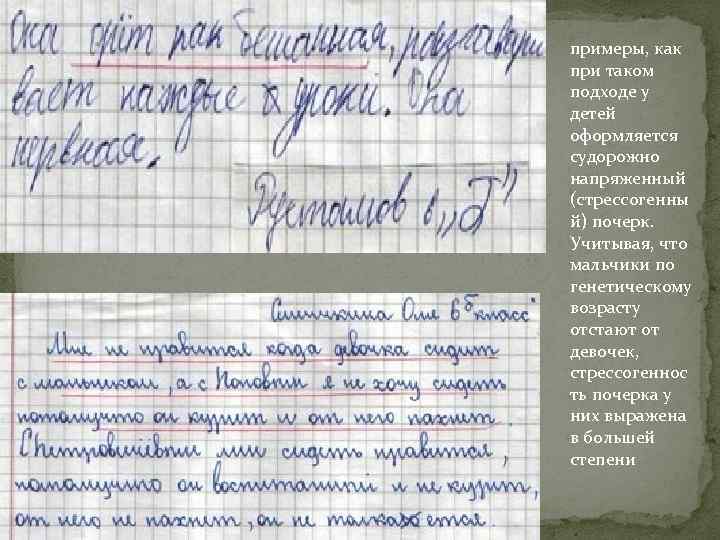 Она оріт как бешанная, розгавари
вает каждые уроки. Она
нервная.
Рустамов 6 „Г”
Оля 6б класс
Мне не нравится когда девочка сидит
с мальчиком, а с Поповтм я не хочу сидеть
потомучто он курит и от него пахнет.
мни сидеть нравится,
потомучто он воспитаний и не курит,
от него не пахнет, он не толкается.
примеры, как
при таком
подходе у
детей
оформляется
судорожно
напряженный
(стрессогенны
й) почерк.
Учитывая, что
мальчики по
генетическому
возрасту
отстают от
девочек,
стрессогеннос
ть почерка у
них выражена
в большей
степени